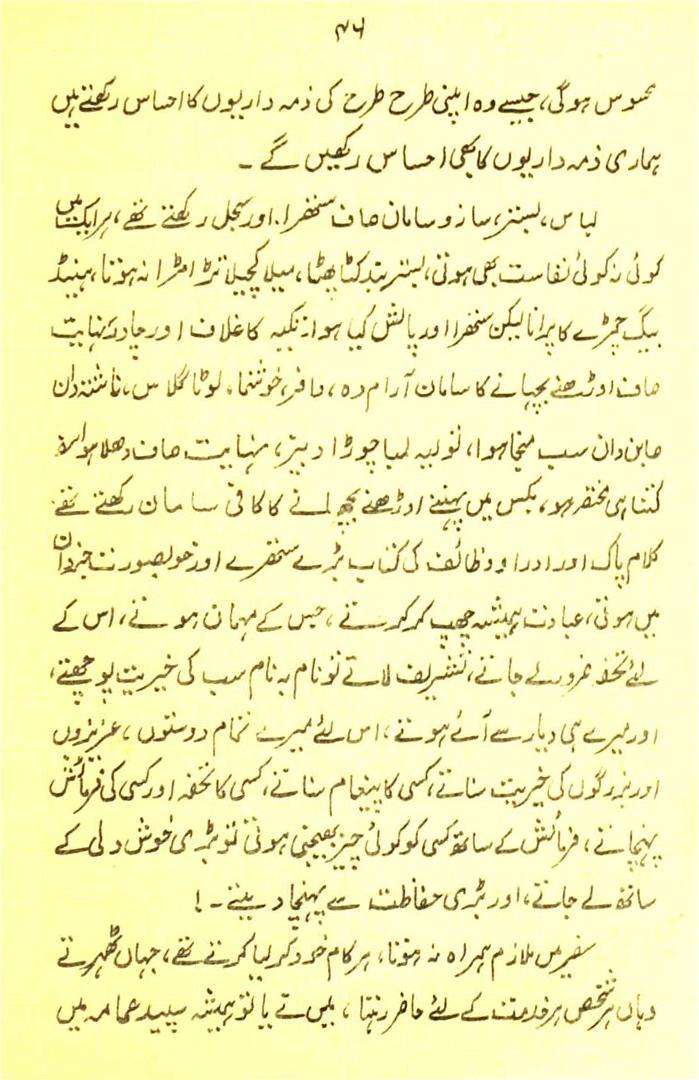 ۴۶
محسوس ہوگی، جیسے وہ اپنی طرح طرح کی ذمہ داریوں کا احساس رکھتے ہیں
ہماری ذمہ داریوں کا بھی احساس رکھیں گے ۔
لباس، بستر، ساز و سامان صاف ستھرا اور سجل رکھتے تھے، ہر ایک میں
کوئی نہ کوئی نفاست بھی ہوتی، بستر بند کٹا پھٹا، میلا کچیلا تڑا مڑا نہ ہوتا، ہینڈ
بیگ چمڑے کا پرانا لیکن ستھرا اور پالش کیا ہوا، تکیہ کا غلاف اور چادر نہایت
صاف اوڑھنے بچھانے کا سامان آرام دہ، وافر، خوشنما، لوٹا گلاس، ناشتہ دان
صابن دان سب منجھا ہوا، تولیہ لمبا چوڑا دبیز، نہایت صاف دھلا ہوا
کتنا ہی مختصر ہو، بکس میں پہننے اوڑھنے بچھانے کا کافی سامان رکھتے تھے
کلام پاک اور اوراد و وظائف کی کتاب بڑے ستھرے اور خوبصورت جزدان
میں ہوتی، عبادت ہمیشہ چھپ کر کرتے، جس کے مہمان ہوتے، اس کے
لئے تحفہ ضرور لے جاتے، تشریف لاتے تو نام بہ نام سب کی خیریت پوچھتے،
اور میرے ہی دیار سے آئے ہوتے، اس لئے میرے تمام دوستوں، عزیزوں
اور بزرگوں کی خیریت سناتے، کسی کا پیغام سناتے، کسی کا تحفہ اور کسی کی فرمائش
پہنچاتے، فرمائش کے ساتھ کسی کو کوئی چیز بھیجنی ہوتی تو بڑی خوش دلی کے
ساتھ لے جاتے، اور بڑی حفاظت سے پہنچا دیتے ۔!
سفر میں ملازم ہمراہ نہ ہوتا، ہر کام خود کر لیا کرتے تھے، جہاں ٹھہرتے
وہاں ہر شخص ہر خدمت کے لئے حاضر رہتا، میں نے یا تو ہمیشہ سپید عمامہ میں